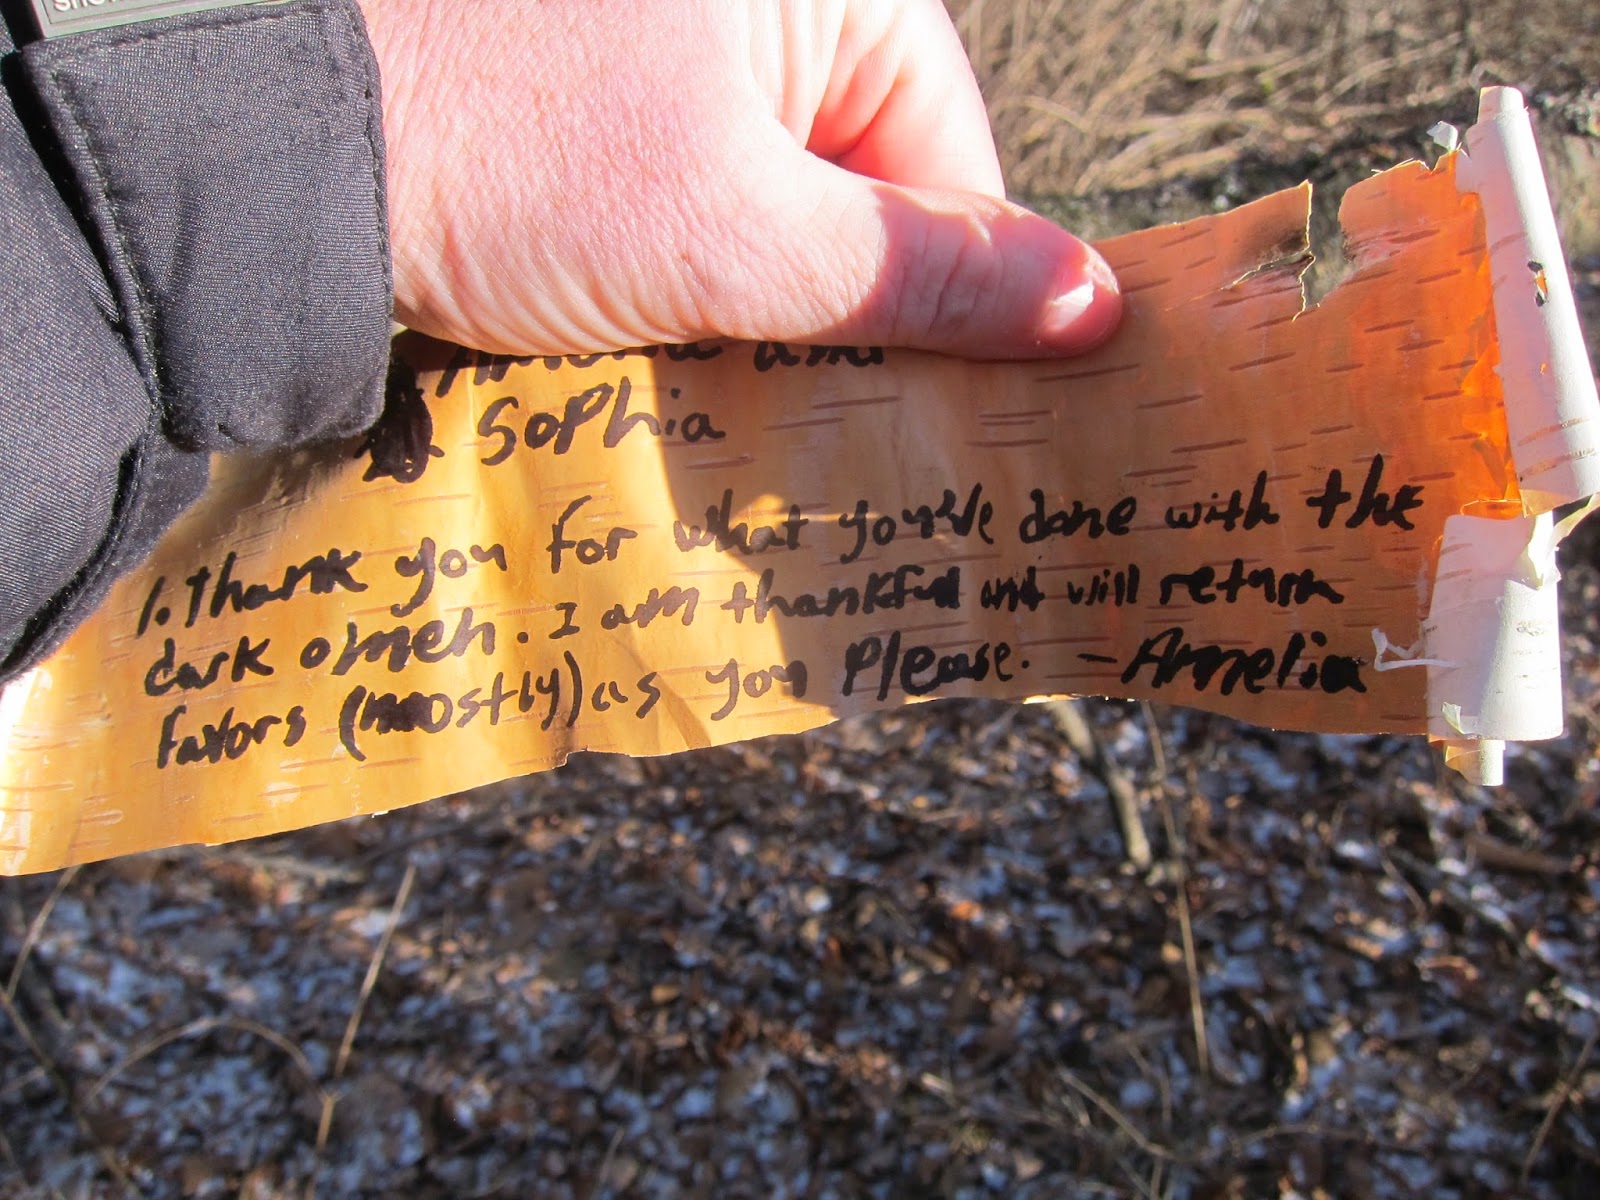 Amelia and
Sophia
1. Thank you for what you've done with the
dark olmeh. I am thankful and will return
favors (mostly) as you please. - Amelia